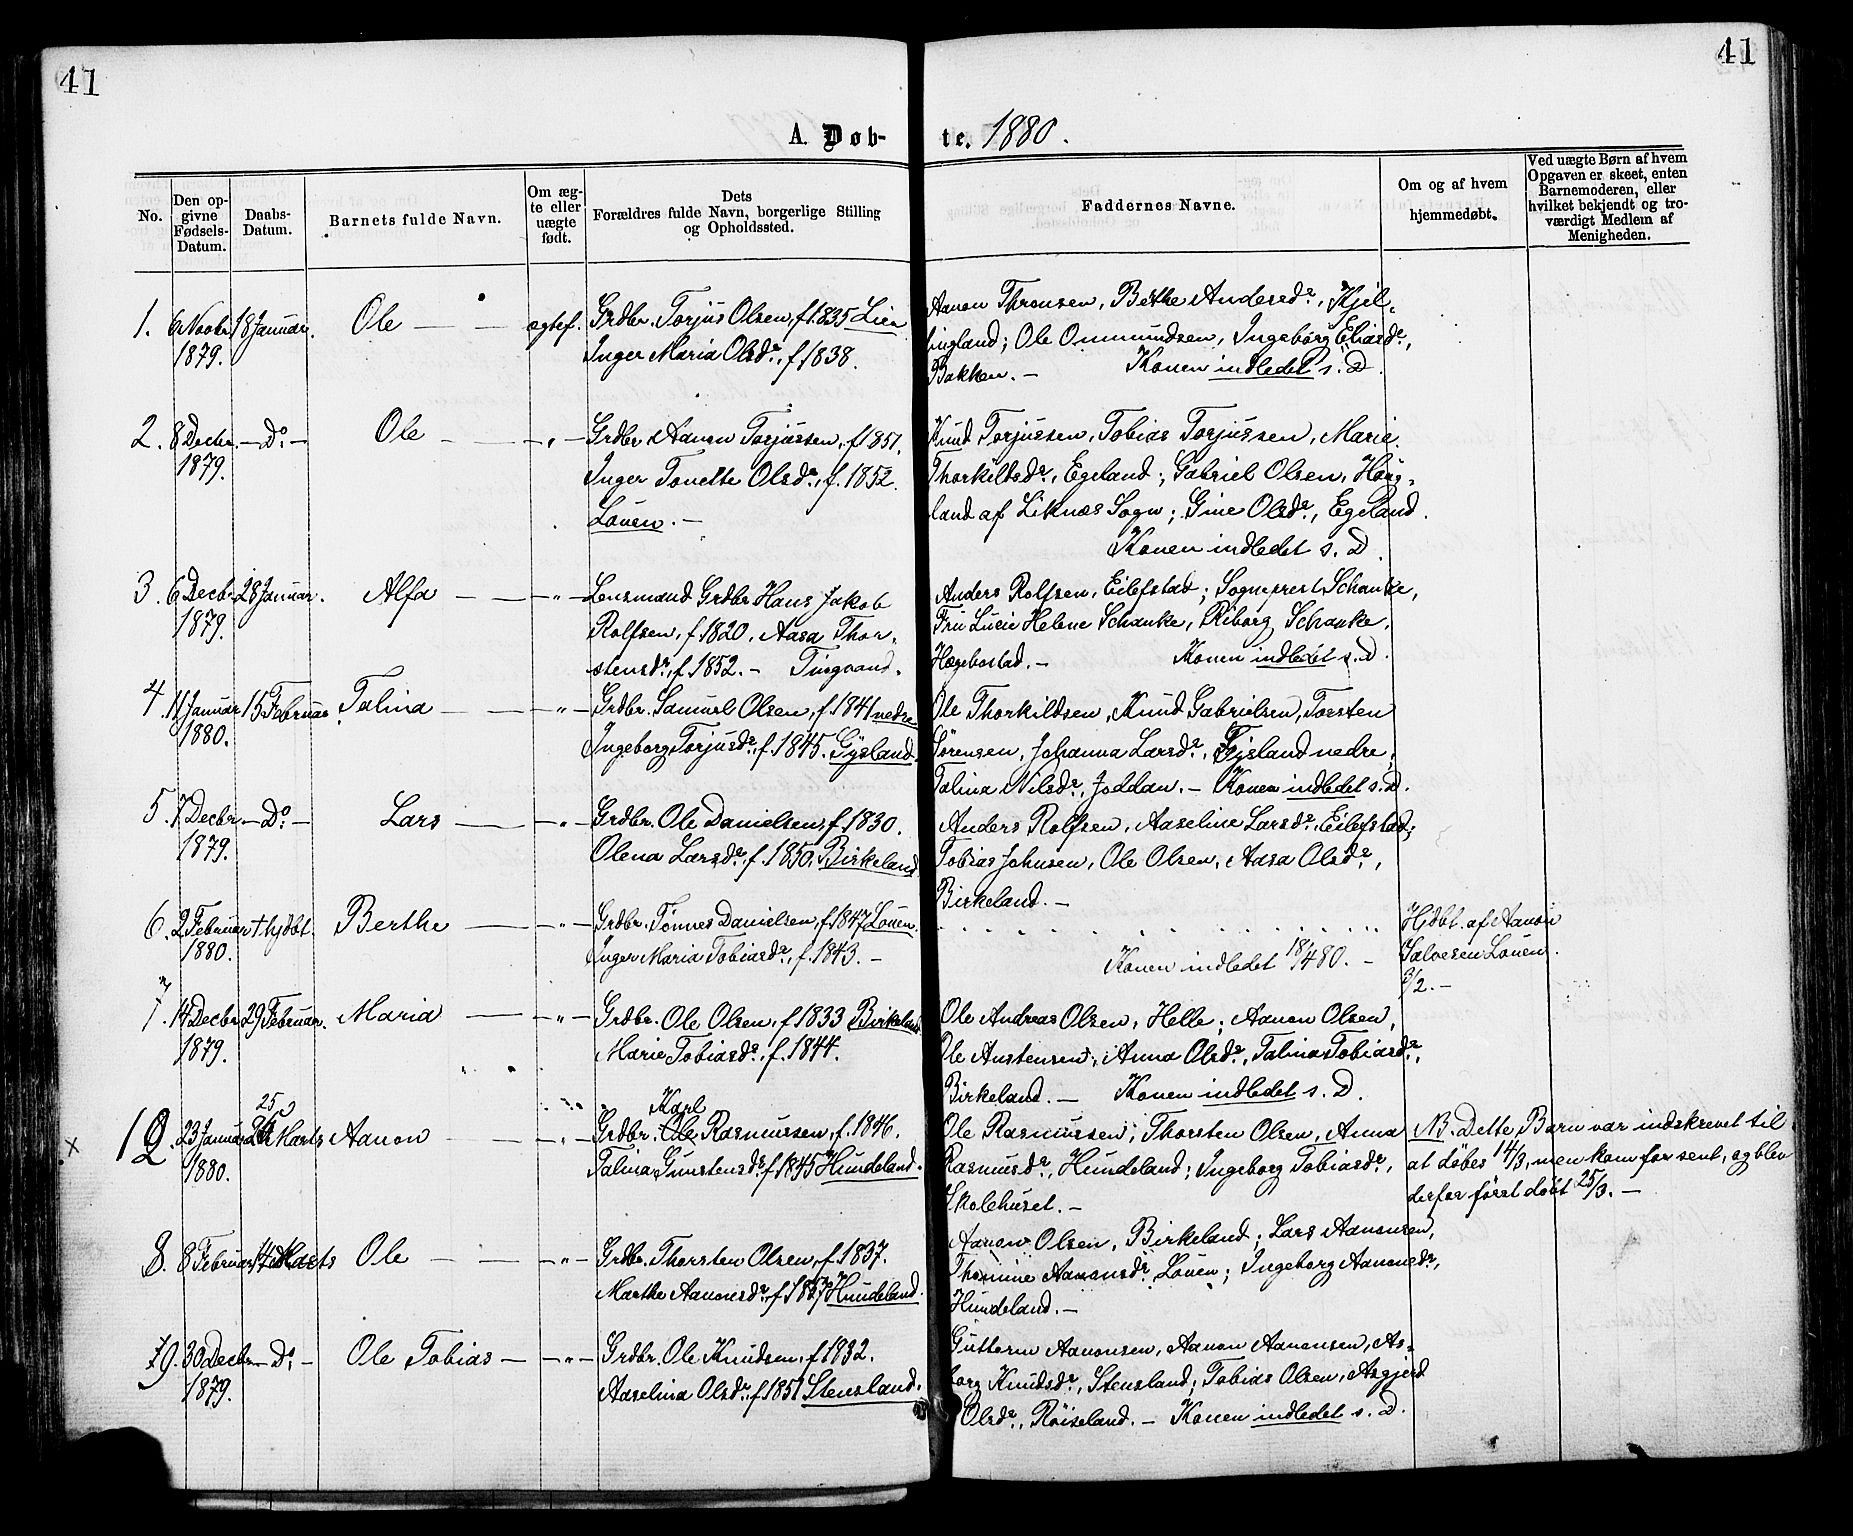 41
41
A. Døb-
te. 1880.
No.
Den op-
givne
Fødsels-
Datum.
Daabs-
Datum.
Barnets fulde Navn.
Om æg-
te eller
uægte
født.
Dets
Forældres fulde Navn, borgerlige Stilling
og Opholdssted.
Faddernes Navne.
Om og af hvem
hjemmedøbt.
Ved uægte Børn af hvem
Opgaven er skeet, enten
Barnemoderen, eller
hvilket bekjendt og tro-
værdigt Medlem af
Menigheden.
1. 6 Novbr. 18 Januar. Ole — — ægtef. Grdbr. Torjus Olsen, f. 1835 Lien
1879. Inger Maria Olsdr., f 1838.
Aanon Thronsen, Bethe Andersdr., Kjel-
lingland; Ole Ommundsen, Ingeborg Eliasdr.,
Bakken. — Konen indledet s. D.
2. 8 Decbr. — Do. — Ole — — „ — Grdbr. Aanon Torjussen, f. 1851.
1879. Inger Tonette Olsdr., f. 1852.
Louen. —
Knud Torjussen, Tobias Torjussen, Marie
Thorkildsdr., Egeland; Gabriel Olsen, Houg-
land af Liknæs Sogn; Gine Olsdr., Egeland.
Konen indledet s. D.
3. 6 Decbr. 28 Januar. Alfa — — „ — Lensmand Grdbr. Hans Jakob
1879. Rolfsen, f 1820, Aasa Thor-
stensdr., f 1852. — Tingvand.
Anders Rolfsen, Eilefstad; Sogneprest Schanke,
Fru Lucie Helene Schanke, Riborg Schanke,
Hægebostad. — Konen indledet s. D.
4. 11 Januar 15 Februar Talina — — „ — Grdbr. Samuel Olsen, f. 1841 nedre
1880. Ingeborg Torjusdr., f. 1845. Gysland.
Ole Thorkildsen, Knud Gabrielsen, Torsten
Sørensen, Johanna Larsdr., Gysland nedre;
Talina Nilsdr., Joddan. — Konen indledet s. D.
5. 7 Decbr. — Do. — Lars — — „ — Grdbr. Ole Danielsen, f 1830.
1879. Olena Larsdr., f. 1850. Birkeland
Anders Rolfsen, Aaseline Larsdr., Eilefstad;
Tobias Johnsen, Ole Olsen, Aasa Olsdr.,
Birkeland. —
6. 2 Februar † hjdbt. Berthe — — „ — Grdbr. Tønnes Danielsen, f. 1847 Louen.
1880. Inger Maria Tobiasdr., f. 1843. —
Konen indledet 18/4 80. —
Hjdbt. af Aanon
Salvesen Louen.
3/2. —
7. 14 Decbr. 29 Februar. Maria — — „ — Grdbr. Ole Olsen, f 1833 Birkeland
1879. Marie Tobiasdr., f. 1844.
Ole Andreas Olsen, Helle; Aanon Olsen,
Ole Austensen, Anna Olsdr., Talina Tobiasdr.,
Birkeland. — Konen indledet s. D.
25 Karl
12. 23 Januar Marts Aanon — — „ — Grdbr. Ole Rasmussen, f. 1846.
1880. Talina Gunstensdr., f 1845 Hundeland.
Ole Rasmussen, Thorsten Olsen, Anna
Rasmusdr., Hundeland; Ingeborg Tobiasdr.,
Skolehuset. —
NB. Dette Barn var indskrevet til
at døbes 14/3, men kom for sent, og blev
derfor først døbt 25/3. —
8. 8 Februar 14 Marts Ole — — „ — Grdbr. Thorsten Olsen, f. 1837.
Marthe Aanonsdr., f 1837 Hundeland.
Aanon Olsen, Birkeland; Lars Aanonsen,
Thomine Aanonsdr., Louen; Ingeborg Aanonsdr.,
Hundeland. —
9. 30 Decbr. — Do. — Ole Tobias — — „ — Grdbr. Ole Knudsen, f. 1832.
1879. Aaselina Olsdr., f. 1851 Stensland.
Guttorm Aanonsen, Aanon Aanonsen, As-
borg Knudsdr., Stensland; Tobias Olsen, Asgjerd
Olsdr., Røiseland. — Konen indledet s. D.